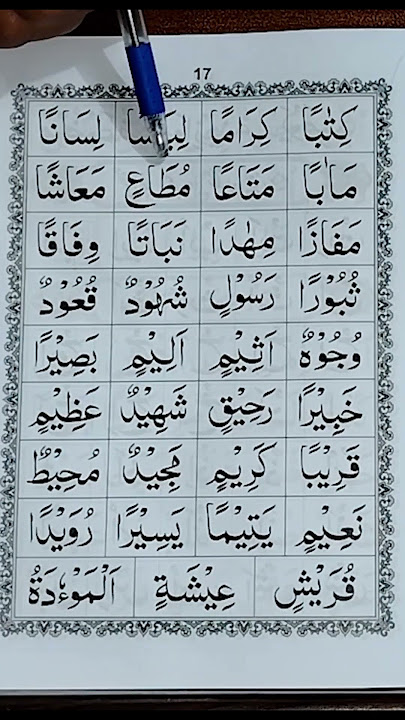 17
كِتٰبًا كِرَامًا لِبَاسًا لِسَانًا
مَاٰبًا مَتَاعًا مُطَاعٍ مَعَاشًا
مَفَازًا مِهٰدًا نَبَاتًا وِفَاقًا
ثُبُوْرًا رَسُوْلٍ شُهُوْدٌ قُعُوْدٌ
وُجُوْهٌ اَثِيْمٍ اَلِيْمٍ بَصِيْرًا
خَبِيْرًا رَحِيْقٍ شَهِيْدٌ عَظِيْمٍ
قَرِيْبًا كَرِيْمٍ مَجِيْدٌ مُحِيْطٌ
نَعِيْمٍ يَتِيْمًا يَسِيْرًا رُوَيْدًا
قُرَيْشٍ عِيْشَةٍ اَلْمَوْءٗدَةُ